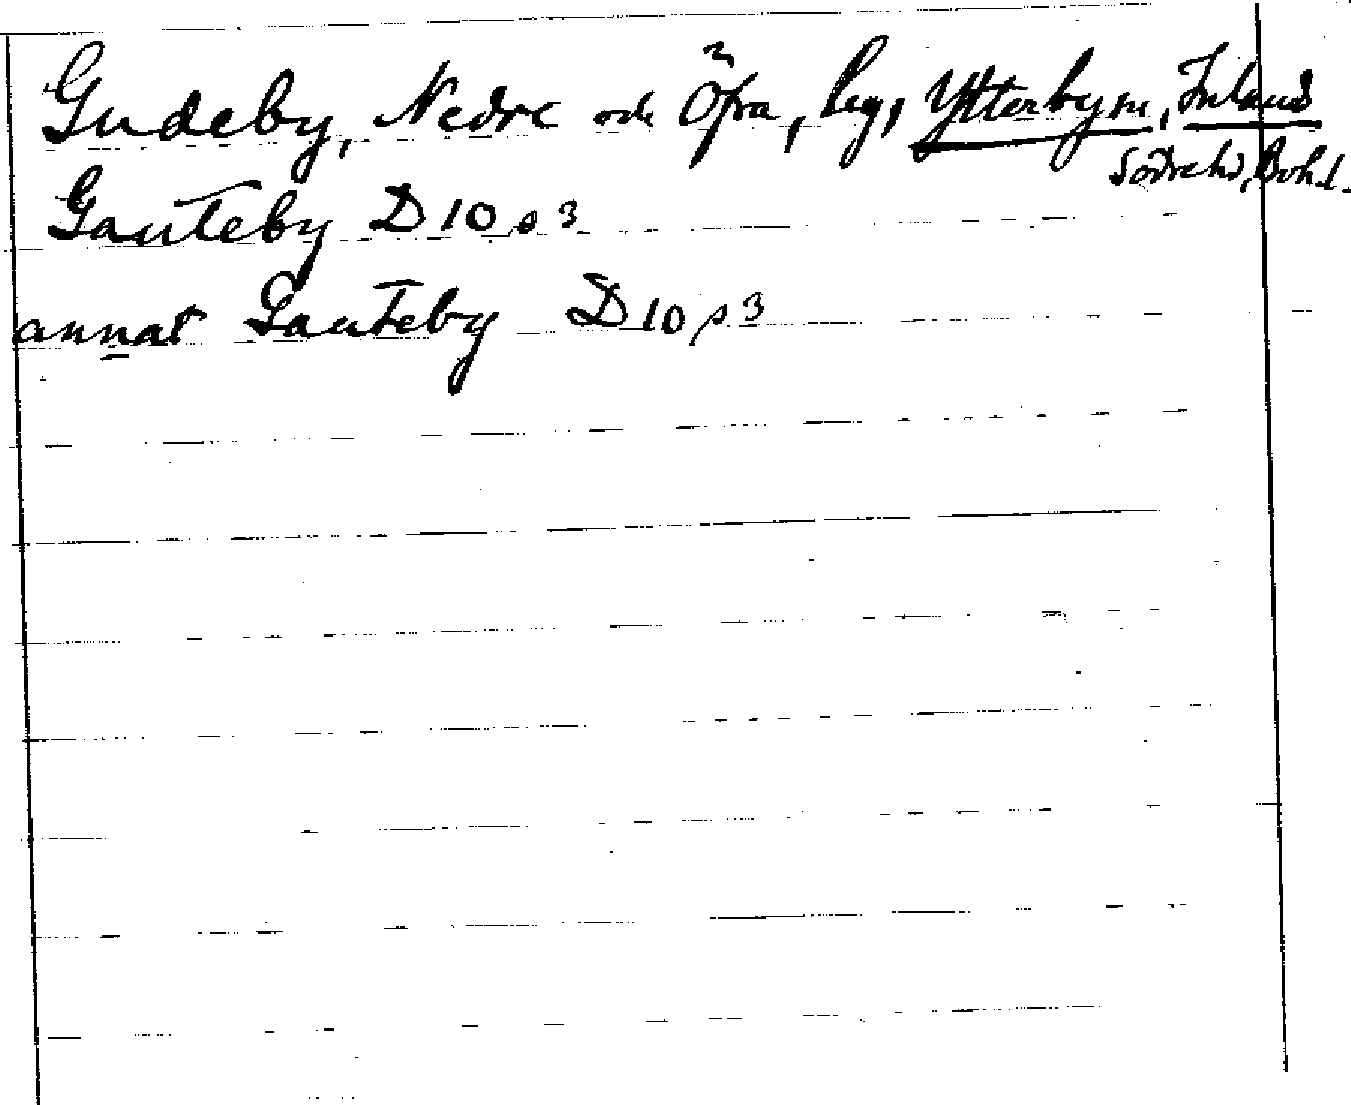 Gudeby, Nedre och Öfra, By, Ytterbyn, Inlands
Södrehd, Bohl.
Gauteby D 10 s 3
annat Gauteby D 10 s 3